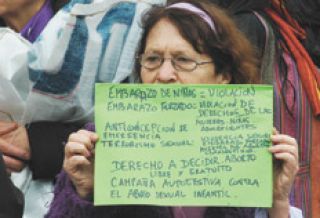 EMBARAZO DE NIÑAS = VIOLACION
EMBARAZO FORZADO: VIOLACION DE
DERECHOS DE LAS
MUJERES NIÑAS
ADOLESCENTES
ANTICONCEPCION DE
EMERGENCIA
TERRORISMO SEXUAL
VIOLENCIA SEXUAL
DERECHO A DECIDIR ABORTO
LIBRE Y GRATUITO
CAMPAÑA AUTOGESTIVA CONTRA
EL ABUSO SEXUAL INFANTIL.